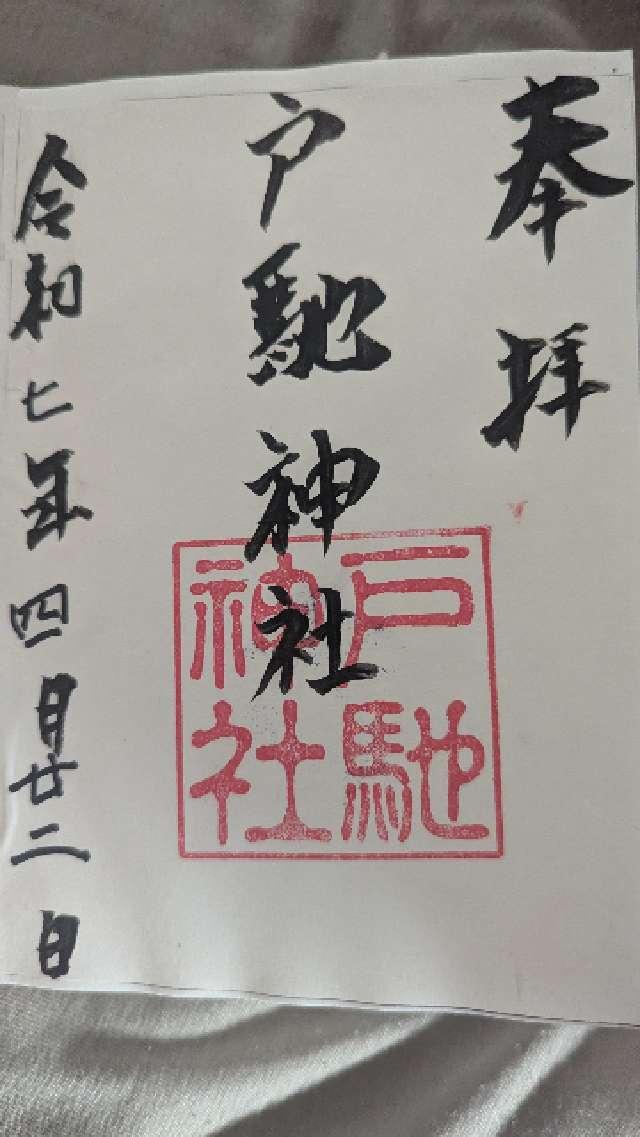 奉拝
戸馳神社
戸馳
神社
令和七年四月廿二日